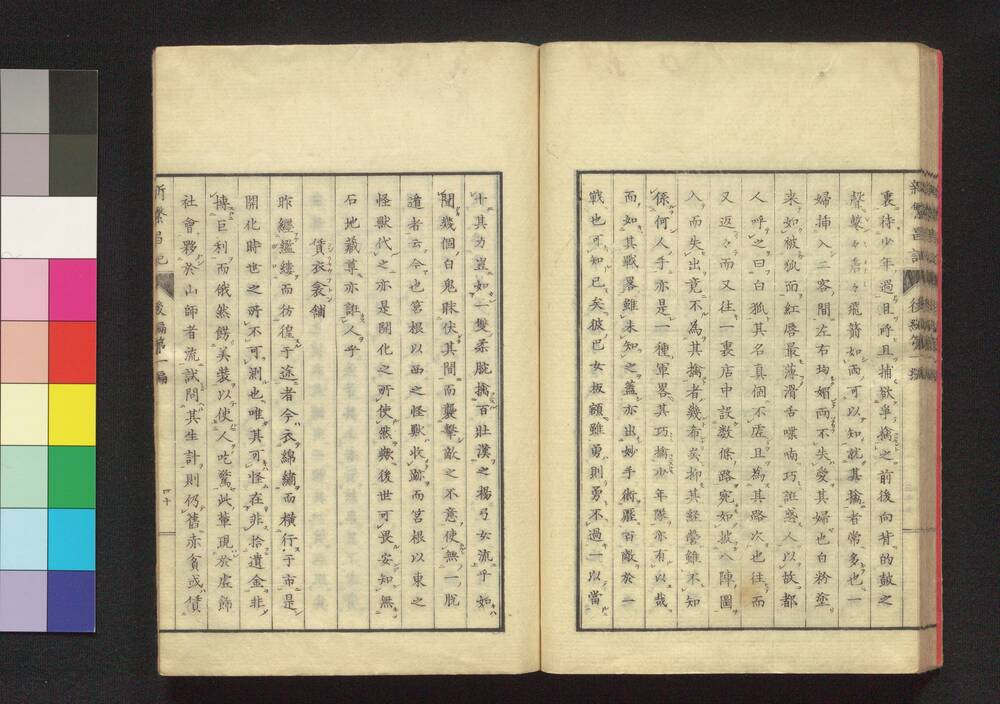 裏待少年過且呼且捕欲生擒之前後向背的皷之
聲擊々轟々飛箭如雨可以知就其擒者常多也一
婦挿入二客間左右均媚兩不失愛其婦也白粉塗
來如被狐而紅唇最薄滑舌喋喃巧誑惑人以故都
人呼之曰白狐其名真個不虛且為其路次也往而
又返々而又往一裏店中設數條路宛如披八陣圖
入而失出竟不為其擒者幾希矣抑其經營雖不知
係何人手亦是一種軍畧其巧擒少年隊亦有以哉
而如其戰畧雖未知之蓋亦出妙手術歷百敵於一
戰也可知已矣彼巴女板額雖勇則勇不過一以當
十其力豈如一雙柔腕擒百壯漢之楊弓女流乎姑
聞幾個白鬼昧伏其間而襲擊敵之不意使無一脫
道者云今也筥根以西之怪獸收跡而筥根以東之
怪獸代之亦是開化之所使然歟後世可畏安知無
石地藏尊亦誑人乎
賃衣衾舖
昨纏縕縷而彷徨于途者今衣綿繡而橫行于市是
開化時世之所不可測也唯其可怪在非拾遺金非
摶巨利而俄然餝美裝以使人吃驚此輩現於虛飾
社會夥於山師者流試問其生計則仍舊赤貧或賃
新繁昌記
後編第一編
四十